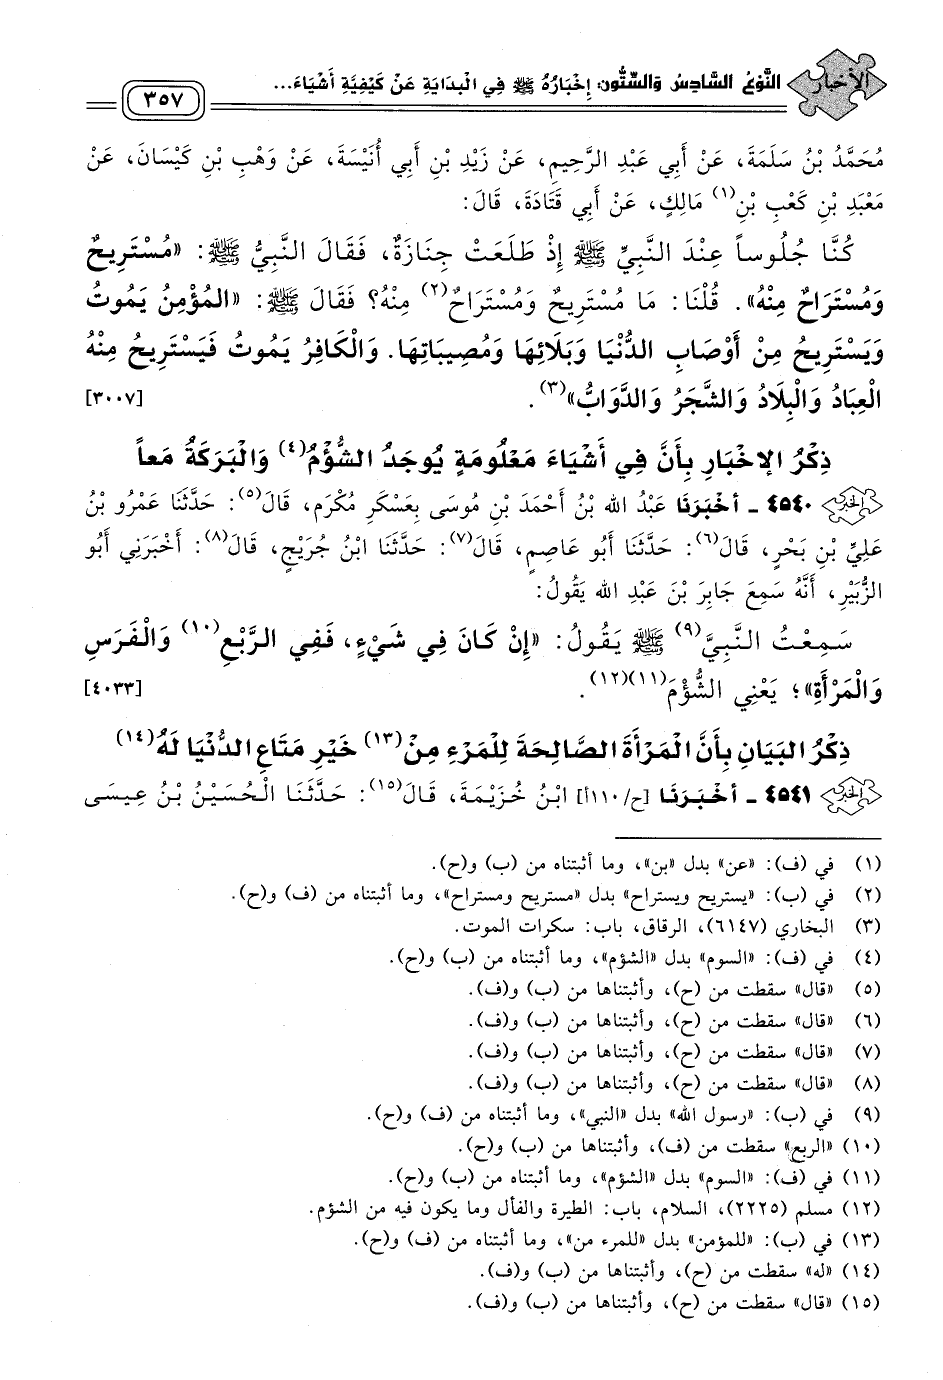 الأخبار
النَّوْعُ السَّادِسُ وَالسِّتُّونَ: إِخْبَارُهُ ﷺ فِي الْبَدَايَةِ عَنْ كَيْفِيَّةِ أَشْيَاءَ...
٣٥٧
مُحَمَّدُ بْنُ سَلَمَةَ، عَنْ أَبِي عَبْدِ الرَّحِيمِ، عَنْ زَيْدِ بْنِ أَبِي أُنَيْسَةَ، عَنْ وَهْبِ بْنِ كَيْسَانَ، عَنْ
مَعْبَدِ بْنِ كَعْبِ بْنِ(١) مَالِكٍ، عَنْ أَبِي قَتَادَةَ، قَالَ:
كُنَّا جُلُوساً عِنْدَ النَّبِيِّ ﷺ إِذْ طَلَعَتْ جِنَازَةٌ، فَقَالَ النَّبِيُّ ﷺ: «مُسْتَرِيحٌ
وَمُسْتَرَاحٌ مِنْهُ». قُلْنَا: مَا مُسْتَرِيحٌ وَمُسْتَرَاحٌ(٢) مِنْهُ؟ فَقَالَ ﷺ: «المُؤْمِنُ يَمُوتُ
وَيَسْتَرِيحُ مِنْ أَوْصَابِ الدُّنْيَا وَبَلَائِهَا وَمُصِيبَاتِهَا. وَالْكَافِرُ يَمُوتُ فَيَسْتَرِيحُ مِنْهُ
الْعِبَادُ وَالْبِلَادُ وَالشَّجَرُ وَالدَّوَابُّ»(٣). [٣٠٠٧]
ذِكْرُ الإِخْبَارِ بِأَنَّ فِي أَشْيَاءَ مَعْلُومَةٍ يُوجَدُ الشُّؤْمُ(٤) وَالْبَرَكَةُ مَعاً
٤٥٤٠ ـ أَخْبَرَنَا عَبْدُ الله بْنُ أَحْمَدَ بْنِ مُوسَى بِعَسْكَرِ مُكْرَم، قَالَ(٥): حَدَّثَنَا عَمْرُو بْنُ
عَلِيِّ بْنِ بَحْرٍ، قَالَ(٦): حَدَّثَنَا أَبُو عَاصِمٍ، قَالَ(٧): حَدَّثَنَا ابْنُ جُرَيْجٍ، قَالَ(٨): أَخْبَرَنِي أَبُو
الزُّبَيْرِ، أَنَّهُ سَمِعَ جَابِرَ بْنَ عَبْدِ الله يَقُولُ:
سَمِعْتُ النَّبِيَّ(٩) ﷺ يَقُولُ: «إِنْ كَانَ فِي شَيْءٍ، فَفِي الرَّبْعِ(١٠) وَالْفَرَسِ
وَالْمَرْأَةِ»؛ يَعْنِي الشُّؤْمَ(١١)(١٢). [٤٠٣٣]
ذِكْرُ البَيَانِ بِأَنَّ المَرْأَةَ الصَّالِحَةَ لِلْمَرْءِ مِنْ(١٣) خَيْرِ مَتَاعِ الدُّنْيَا لَهُ(١٤)
٤٥٤١ ـ أَخْبَرَنَا [ح/١١٠أ] ابْنُ خُزَيْمَةَ، قَالَ(١٥): حَدَّثَنَا الْحُسَيْنُ بْنُ عِيسَى
(١) في (ف): «عن» بدل «بن»، وما أثبتناه من (ب) و(ح).
(٢) في (ب): «يستريح ويستراح» بدل «مستريح ومستراح»، وما أثبتناه من (ف) و(ح).
(٣) البخاري (٦١٤٧)، الرقاق، باب: سكرات الموت.
(٤) في (ف): «السوم» بدل «الشؤم»، وما أثبتناه من (ب) و(ح).
(٥) «قال» سقطت من (ح)، وأثبتناها من (ب) و(ف).
(٦) «قال» سقطت من (ح)، وأثبتناها من (ب) و(ف).
(٧) «قال» سقطت من (ح)، وأثبتناها من (ب) و(ف).
(٨) «قال» سقطت من (ح)، وأثبتناها من (ب) و(ف).
(٩) في (ب): «رسول الله» بدل «النبي»، وما أثبتناه من (ف) و(ح).
(١٠) «الربع» سقطت من (ف)، وأثبتناها من (ب) و(ح).
(١١) في (ف): «السوم» بدل «الشؤم»، وما أثبتناه من (ب) و(ح).
(١٢) مسلم (٢٢٢٥)، السلام، باب: الطيرة والفأل وما يكون فيه من الشؤم.
(١٣) في (ب): «للمؤمن» بدل «للمرء من»، وما أثبتناه من (ف) و(ح).
(١٤) «له» سقطت من (ح)، وأثبتناها من (ب) و(ف).
(١٥) «قال» سقطت من (ح)، وأثبتناها من (ب) و(ف).